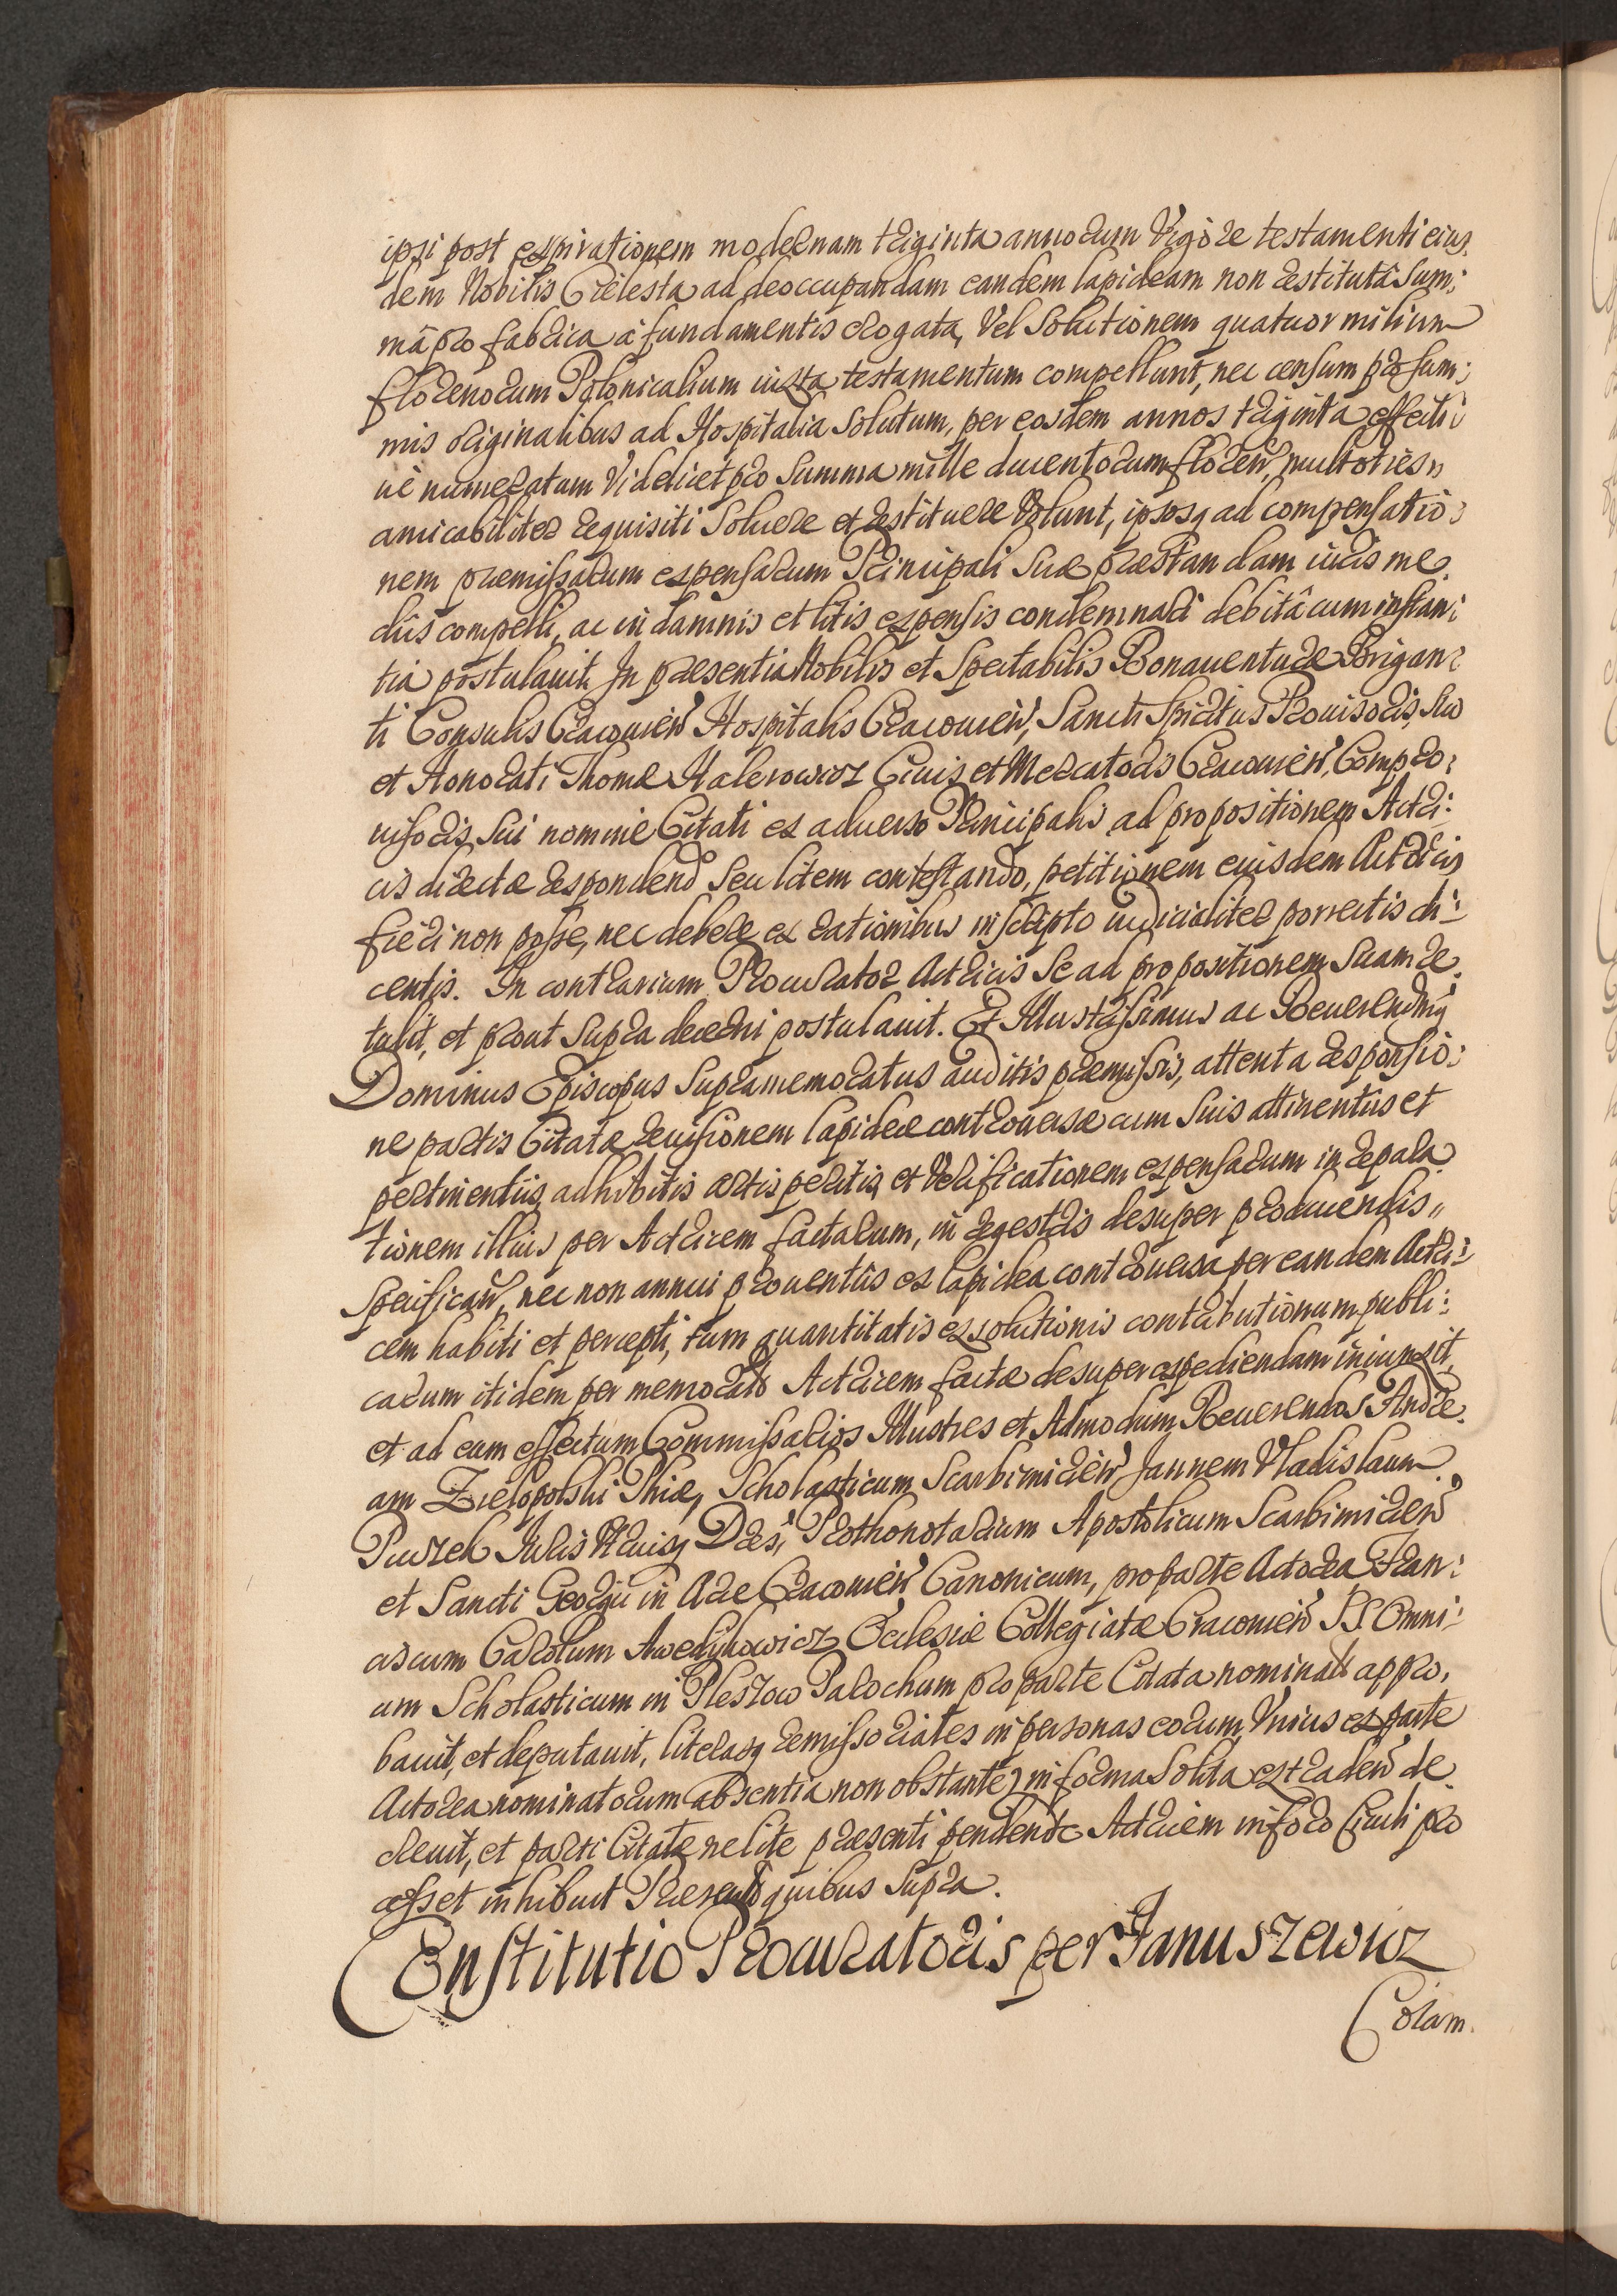 ipsi post expirationem modernam triginta annorum Vigore testamenti eius,
dem Nobilis Cielesta ad deoccupandam eandem lapideam non restitutâ Sum:
mâ pro fabrica à fundamentis erogata, Vel Solutionem quatuor milium
florenorum Polonicalium iuxta testamentum compellunt, nec censum pro sum:
mis originalibus ad Hospitalia Solutum, per eosdem annos triginta effecti:
uè numeratum Videlicet pro Summa mille ducentorum floren, multoties
amicabiliter requisiti Soluere et restituere Volunt, ipsosq ad compensatio:
nem præmissarum expensarum Principali Suæ præstandam iuris me,
diis compelli, ac in damnis et litis expensis condemnari debitâ cum instan:
tia postulauit. In præsentia Nobilis et Spectabilis Bonauenturæ Brigan:
ti Consulis Cracouien Hospitalis Cracouien, Sancti Spiritus Prouisoris, Suo
et Honorati Thomæ Halerowicz Ciuis et Mercatoris Cracouien, Compro:
uisoris, Sui nomine Citati ex aduerso Principalis ad propositionem Actri:
cis directæ respondend Seu litem contestando, petitionem eiusdem Actricis
fieri non posse, nec debere ex rationibus in scripto iudicialiter porrectis di:
centis. In contrarium Procurator Actricis Se ad propositionem Suam re,
tulit, et prout Supra decerni postulauit. Et Illustrissimus ac Reuerendmg
Dominus Episcopus Supramemoratus auditis præmissis, attenta responsio:
ne partis Citatæ reuisionem lapideæ controuersæ cum Suis attinentiis et
pertinentiis, adhibitis artis peritis, et Verificationem expensarum in repara
tionem illius per Actricem factarum, in regestris desuper producendis
Specifican, nec non annui prouentûs ex lapidea controuersa per eandem Actri:
cem habiti et percepti, tum quantitatis exsolutionis contributionum publi:
carum itidem per memorat Actricem factæ desuper expediendam iniunxit,
et ad eum effectum Commissarios Illustres et Admodum Reuerendos Andre,
am Zielopolski Phiæ, Scholasticum Scarbimirien Jannem Vladislaum
Puczek Iuris Vtriusq Dres, Prothonotarium Apostolicum Scarbimirien
et Sancti Georgii in Arce Cracouien Canonicum, pro parte Actorea Fran:
ciscum Carolum Awedykowicz Ecclesiæ Collegiatæ Cracouien SS. Omni:
um Scholasticum in Pleszow Parochum pro parte Citata nominat appro,
bauit, et deputauit, literasq remissoriales in personas eorum, Vnius ex parte
Actorea nominatorum absentia non obstante, in forma Solita extraden de
creuit, et parti Citatæ ne lite præsenti pendente Actricem in foro Ciuili pro
cesset inhibuit Præsent quibus Supra.
Constitutio Procuratoris per Januszewicz
Coram.